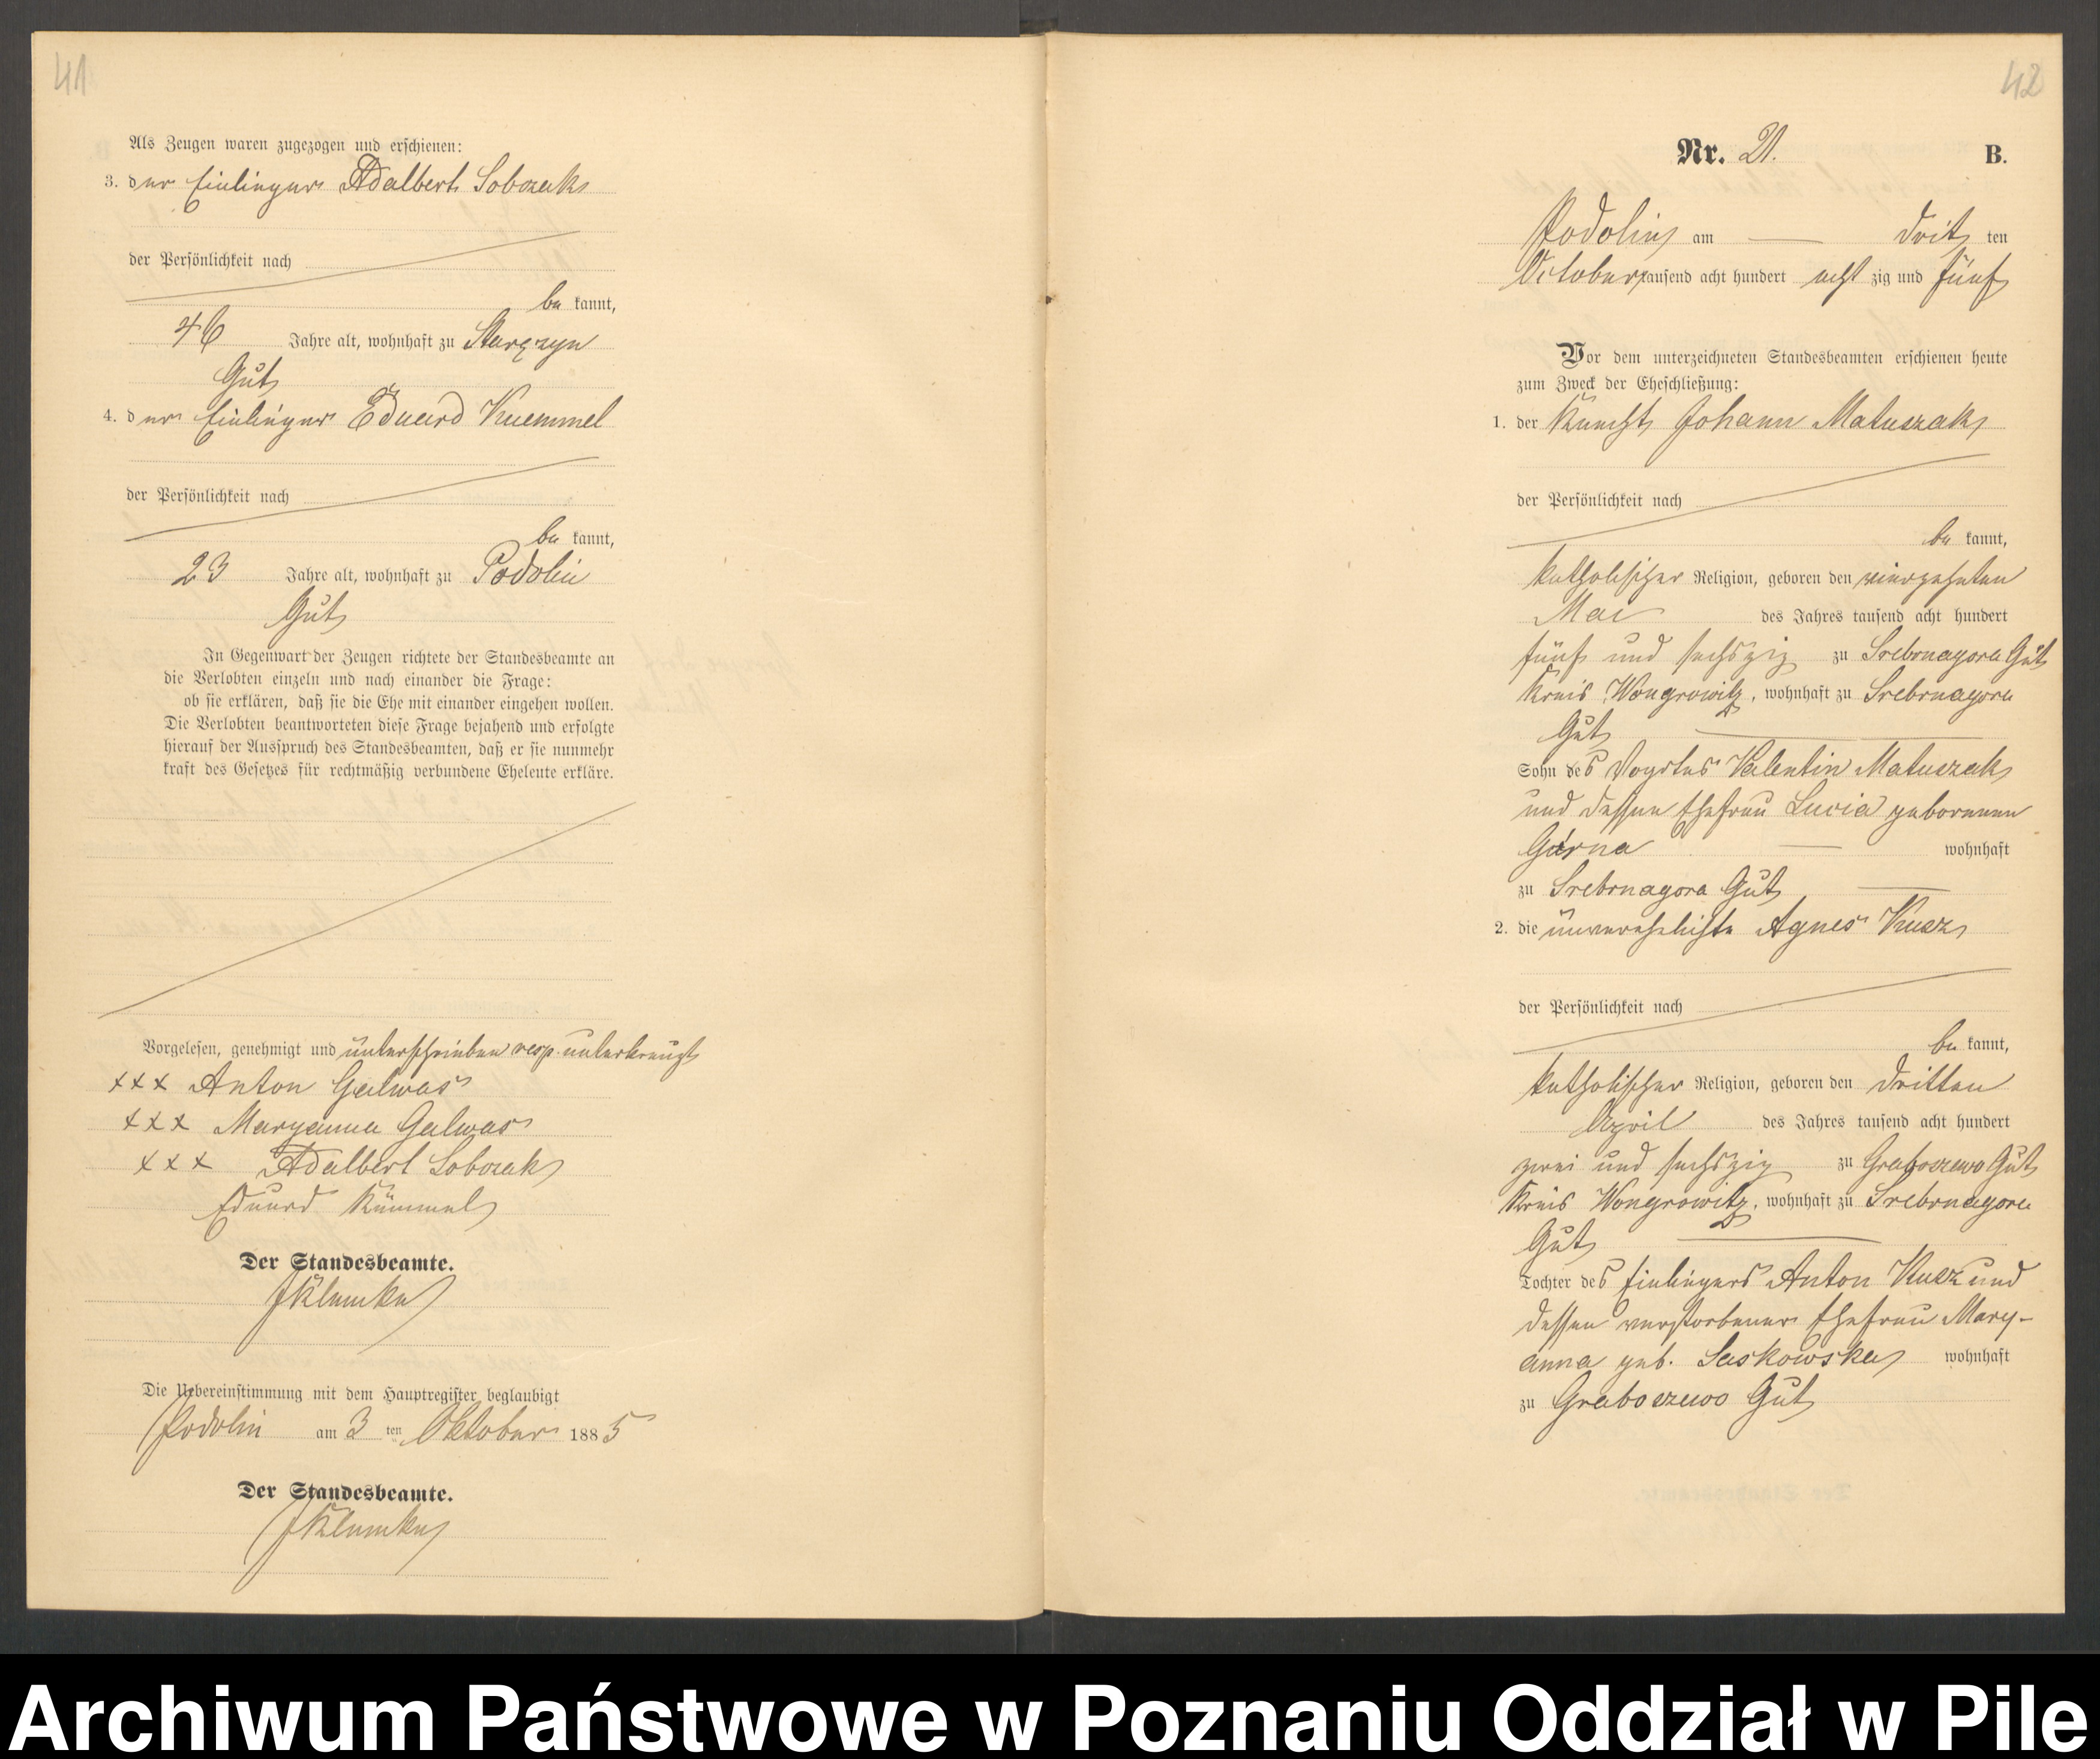 41
Als Zeugen waren zugezogen und erschienen:
3. der Einlieger Adalbert Sobczak
der Persönlichkeit nach
be kannt,
46 Jahre alt, wohnhaft zu Starczyn
Gut
4. der Einlieger Eduard Kuemmel
der Persönlichkeit nach
be kannt,
23 Jahre alt, wohnhaft zu Podolin
Gut
In Gegenwart der Zeugen richtete der Standesbeamte an
die Verlobten einzeln und nach einander die Frage:
ob sie erklären, daß sie die Ehe mit einander eingehen wollen.
Die Verlobten beantworteten diese Frage bejahend und erfolgte
hierauf der Ausspruch des Standesbeamten, daß er sie nunmehr
kraft des Gesetzes für rechtmäßig verbundene Eheleute erkläre.
Vorgelesen, genehmigt und unterschrieben resp. unterkreuzt
xxx Anton Galwas
xxx Maryanna Galwas
xxx Adalbert Sobczak
Eduard Kümmel
Der Standesbeamte.
Klemke
Die Uebereinstimmung mit dem Hauptregister beglaubigt
Podolin am 3 ten Oktober 1885
Der Standesbeamte.
Klemke
42
Nr. 21. B.
Podolin am drit ten
October tausend acht hundert acht zig und fünf
Vor dem unterzeichneten Standesbeamten erschienen heute
zum Zweck der Eheschließung:
1. der Knecht Johann Matuszak
der Persönlichkeit nach
be kannt,
katholischer Religion, geboren den vierzehnten
Mai des Jahres tausend acht hundert
fünf und sechszig zu Srebrnagora Gut
Kreis Wongrowitz, wohnhaft zu Srebrnagora
Gut
Sohn des Vogtes Valentin Matuszak
und dessen Ehefrau Lucia geborenen
Górna wohnhaft
zu Srebrnagora Gut
2. die unverehelichte Agnes Kusz
der Persönlichkeit nach
be kannt,
katholischer Religion, geboren den dritten
April des Jahres tausend acht hundert
zwei und sechszig zu Graboszewo Gut
Kreis Wongrowitz, wohnhaft zu Srebrnagora
Gut
Tochter des Einliegers Anton Kusz und
dessen verstorbener Ehefrau Mary-
anna geb. Laskowska wohnhaft
zu Graboszewo Gut
Archiwum Państwowe w Poznaniu Oddział w Pile